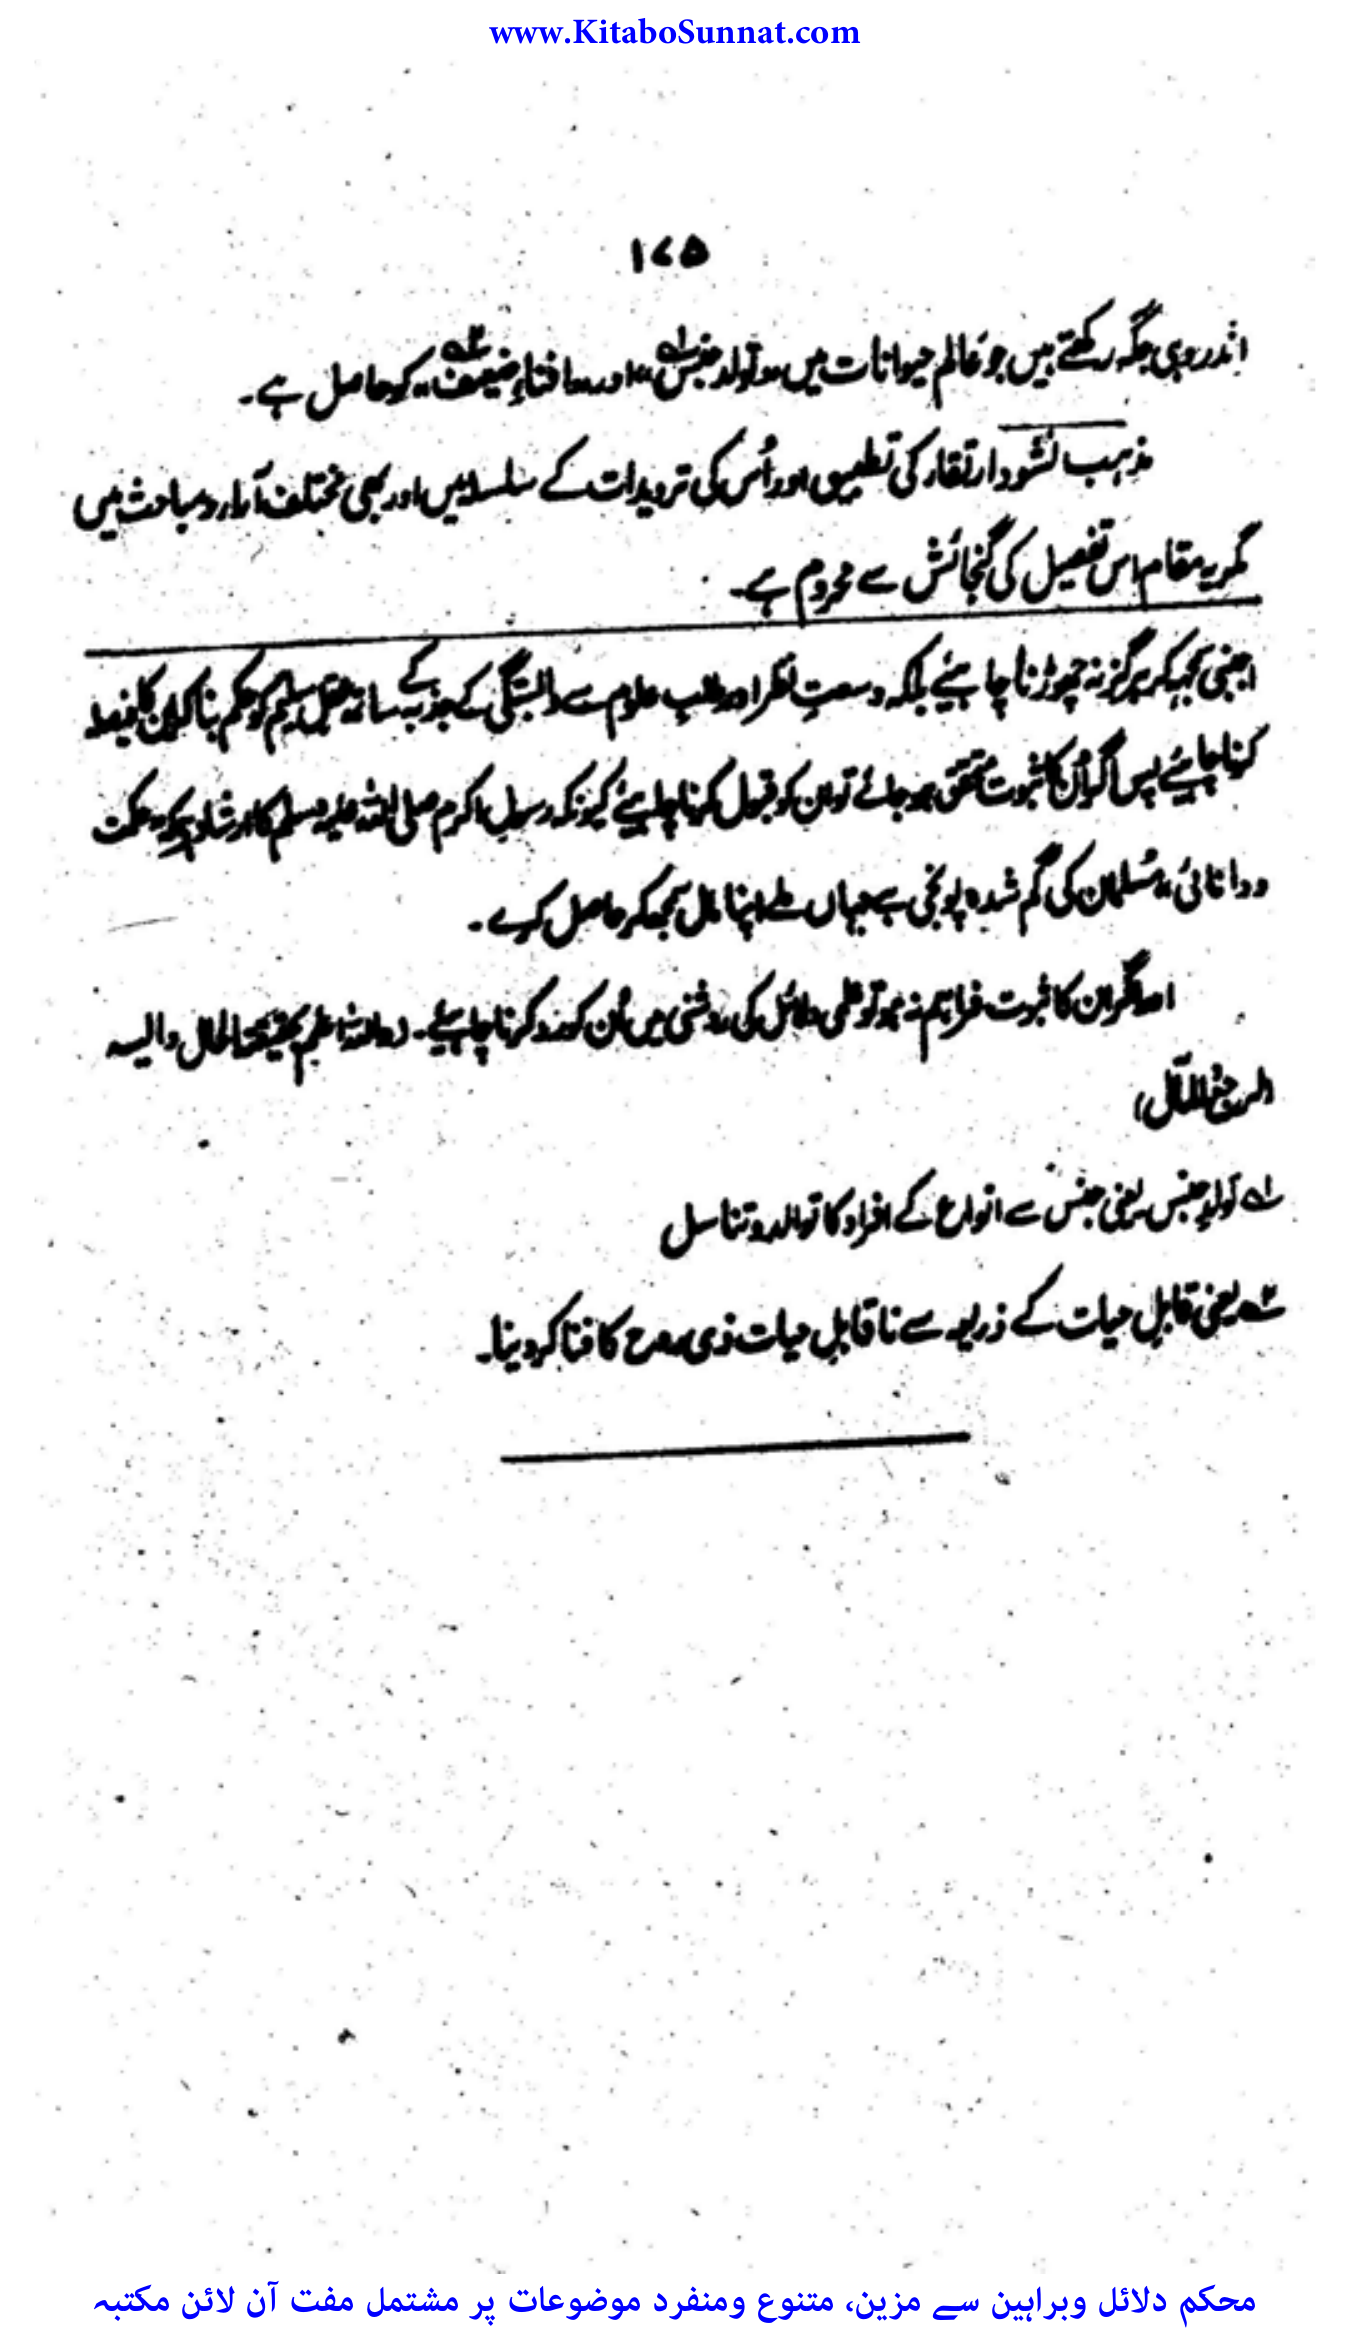 www.KitaboSunnat.com
۱۷۵
اندر وہی جگہ رکھتے ہیں جو عالم حیوانات میں "تولد جنس" لہ اور "افناءِ ضعیف" ۲ہ کو حاصل ہے۔
مذہب نشو و ارتقار کی تطبیق اور اُس کی تردیدات کے سلسلہ میں اور بھی مختلف آرار و مباحث ہیں
مگر یہ مقام اس تفصیل کی گنجائش سے محروم ہے۔
اجنبی سمجھ کر ہرگز نہ چھوڑنا چاہئیے بلکہ وسعتِ نظر اور طلبِ علوم سے وابستگی کے جذبہ کے ساتھ عقلِ سلیم کو حکم بنا کر ان کا فیصلہ
کرنا چاہیئے پس اگر اُن کا ثبوت متحقق ہو جائے تو ان کو قبول کرنا چاہیئے کیونکہ رسولِ اکرم صلی اللہ علیہ وسلم کا ارشاد ہے کہ "حکمت
و دانائی" مُسلمان کی گم شدہ پونجی ہے جہاں ملے اپنا مال سمجھ کر حاصل کرے۔
اور اگر ان کا ثبوت فراہم نہ ہو تو علمی دلائل کی روشنی میں اُن کو رد کرنا چاہیئے۔ (واللہ اعلم بحقیقۃ الحال والیہ
المرجع والمآل)
لہ تولدِ جنس یعنی جنس سے انواع کے افراد کا توالد و تناسل
۲ہ یعنی قابلِ حیات کے ذریعہ سے ناقابلِ حیات ذی روح کا فنا کر دینا۔
محکم دلائل وبراہین سے مزین، متنوع ومنفرد موضوعات پر مشتمل مفت آن لائن مکتبہ